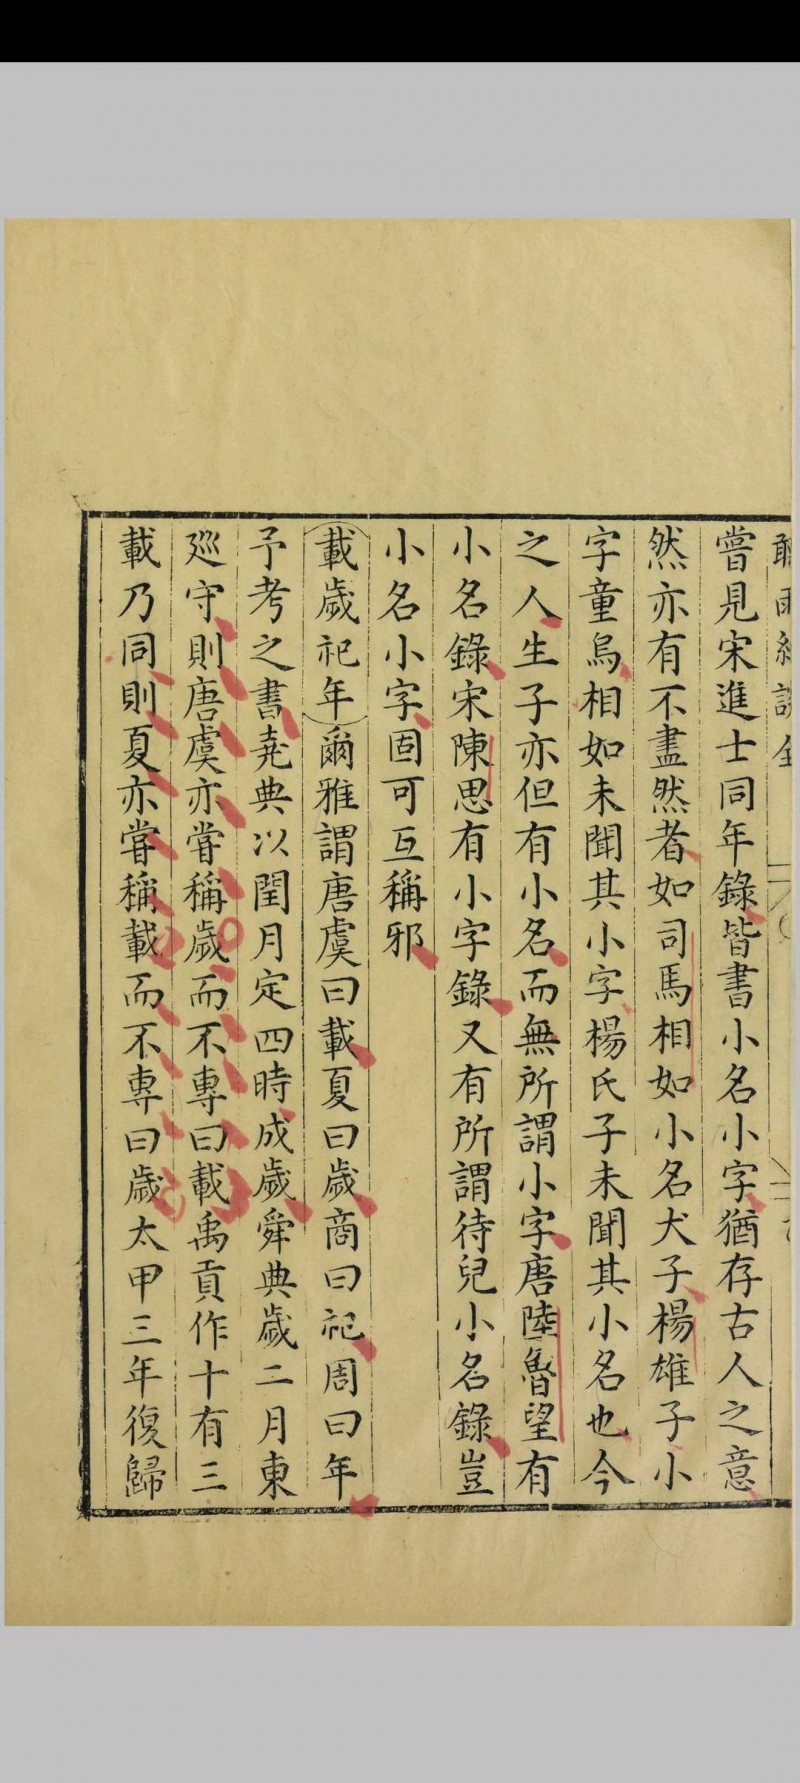 嘗見宋進士同年錄皆書小名小字猶存古人之意
然亦有不盡然者如司馬相如小名犬子楊雄子小
字童烏相如未聞其小字楊氏子未聞其小名也今
之人生子亦但有小名而無所謂小字唐陸魯望有
小名錄宋陳思有小字錄又有所謂待兒小名錄豈
小名小字固可互稱邪
載歲祀年爾雅謂唐虞曰載夏曰歲商曰祀周曰年
予考之書堯典以閏月定四時成歲舜典歲二月東
廵守則唐虞亦嘗稱歲而不專曰載禹貢作十有三
載乃同則夏亦嘗稱載而不專曰歲太甲三年復歸